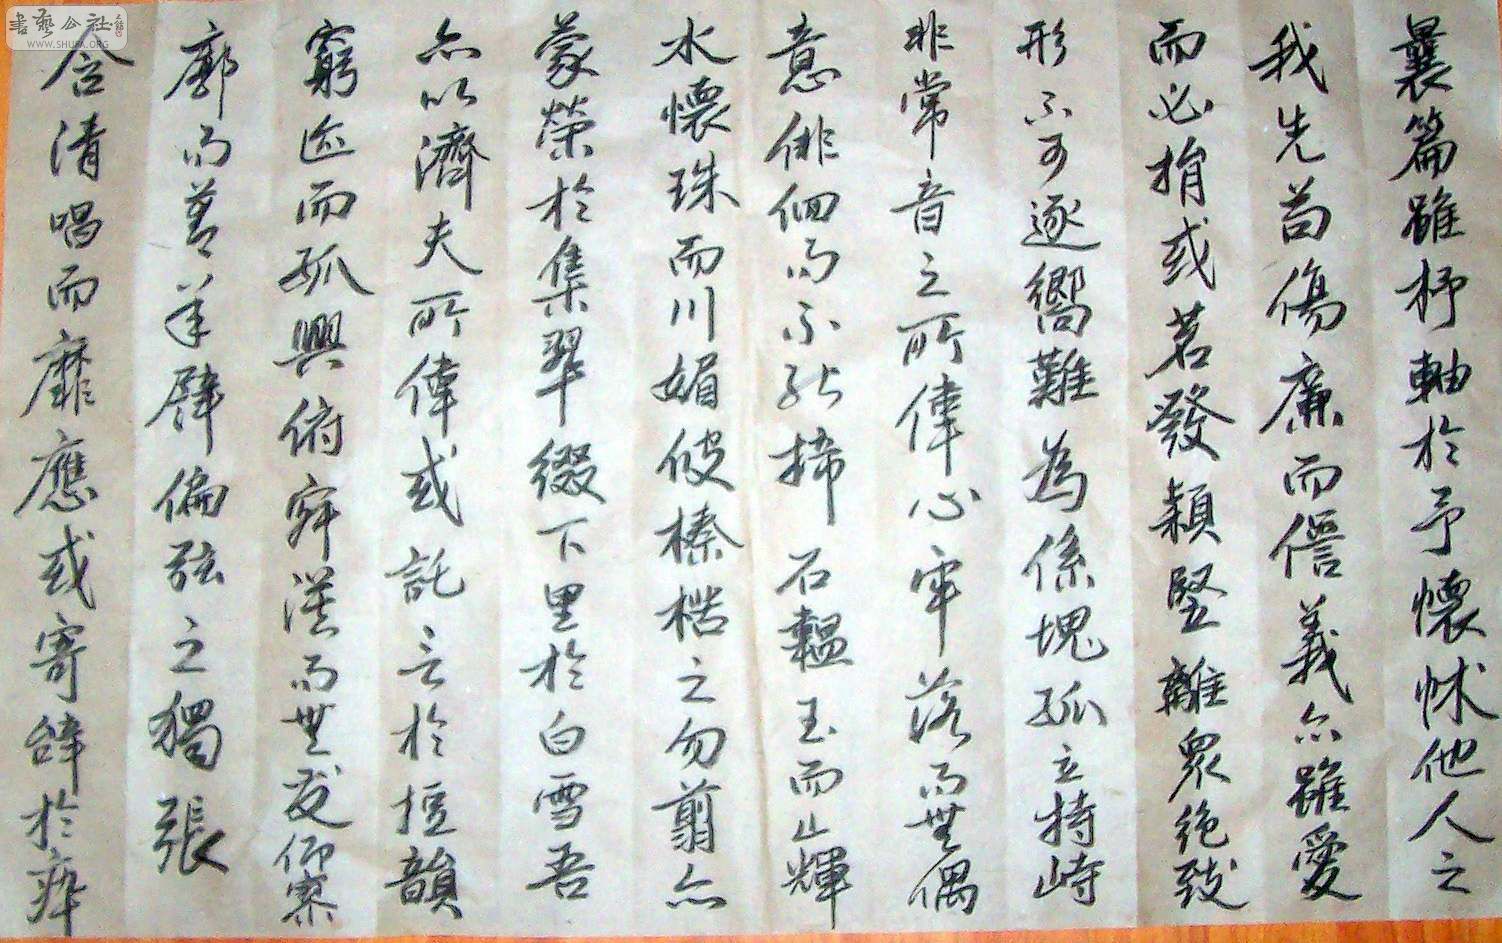 曩篇雖杼軸於予懷怵他人之
我先苟傷廉而愆義亦雖愛
而必捐或苕發穎豎離衆絶致
形不可逐響難為係塊孤立特峙
非常音之所偉心牢落而無偶
意徘徊而不能揥石韞玉而山輝
水懷珠而川媚彼榛楛之勿翦亦
蒙榮於集翠綴下里於白雪吾
亦以濟夫所偉或託言於短韻
窮迹而孤興俯寂漠而無友仰寥
廓而莫承譬偏弦之獨張
含清唱而靡應或寄辭於瘁
書藝公社
WWW.SHUFA.ORG